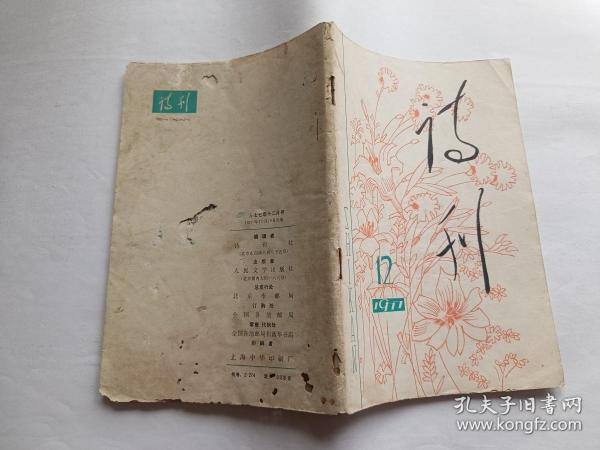 诗刊
SHIKAN
12
1977
诗刊
一九七七年十二月号
编辑者
诗刊社
出版者
人民文学出版社
总发行处
北京市邮局
订购处
全国各地邮局
零售、代销处
全国各地邮局和新华书店
印刷者
上海中华印刷厂
孔夫子旧书网
www.kongfz.com